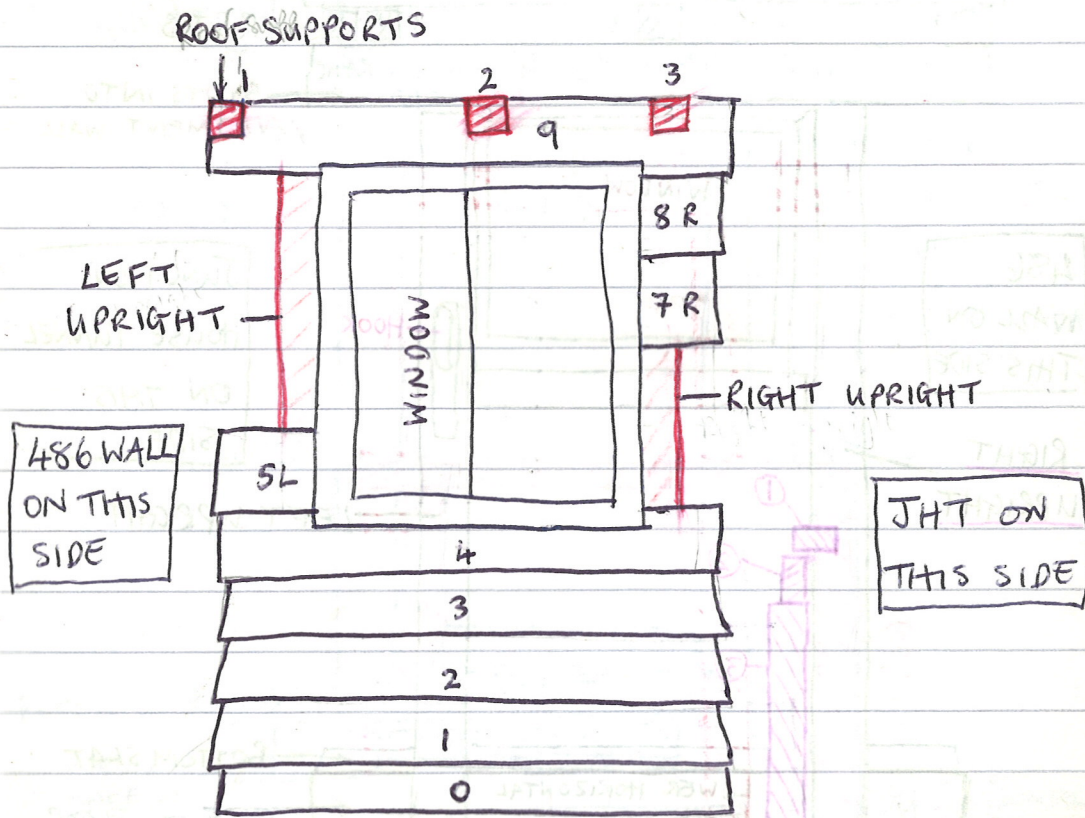 ROOF SUPPORTS
1
2
3
9
8 R
7 R
LEFT
UPRIGHT
WINDOW
RIGHT UPRIGHT
486 WALL
ON THIS
SIDE
5L
JHT ON
THIS SIDE
4
3
2
1
0